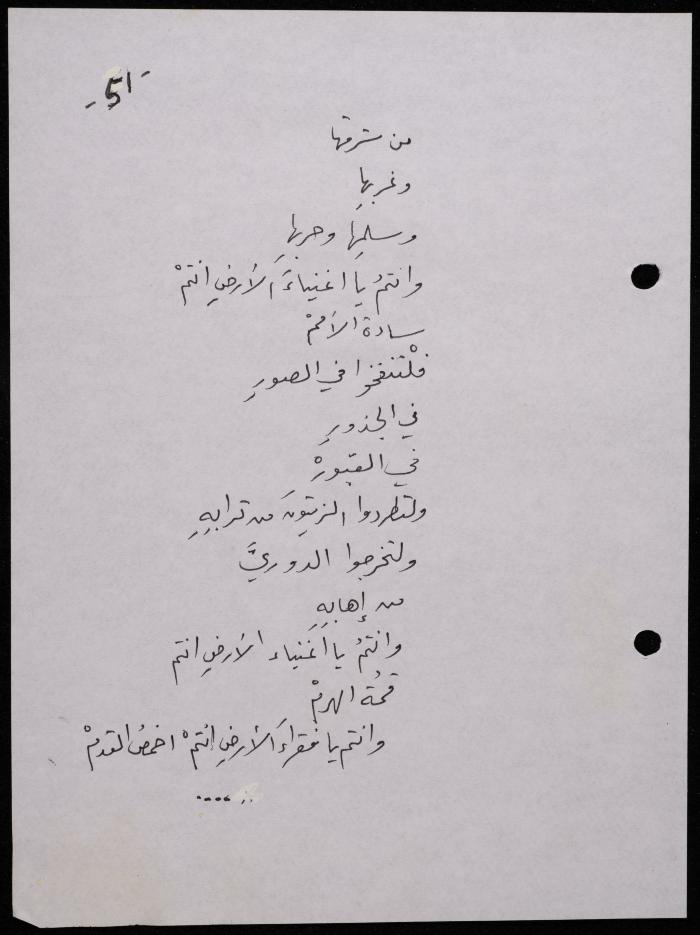 -51-
من شرقها
وغربِها
وسلمِها وحربِها
وانتمُ يا اغنياءَ الأرضِ انتمْ
سادة الأممْ
فلْتنفخوا في الصورِ
في الجذورِ
في القبورْ
ولتطردوا الزيتونَ من ترابِهِ
ولتخرجوا الدوريَّ
من إهابِهِ
وانتمُ يا اغنياء الأرضِ انتم
قمّة الهرمْ
وانتم يا فقراءَ الأرضِ انتمْ اخمصُ القدمْ
......